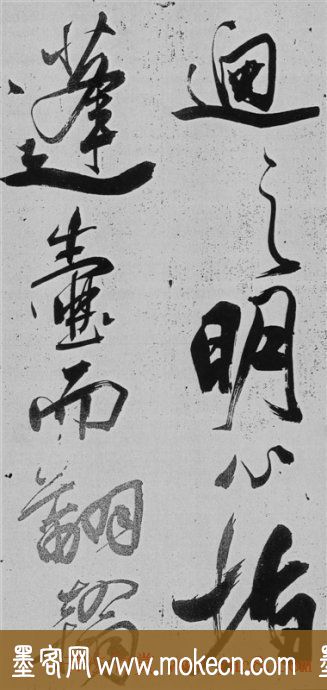 迥之明心指
蓬壺而翻翰
墨客网 www.mokecn.com